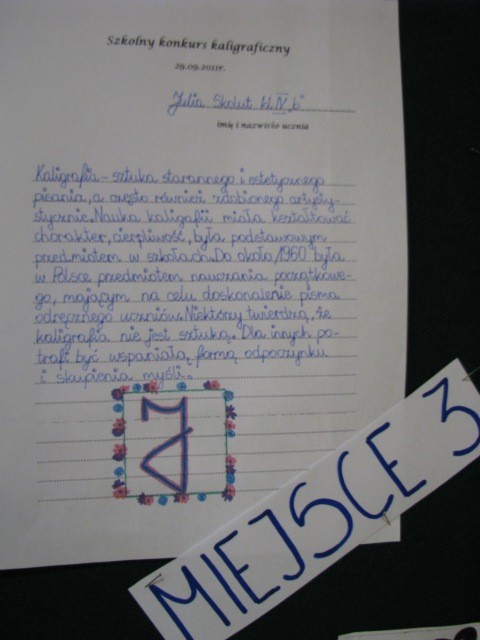 Szkolny konkurs kaligraficzny
29.09.2011r.
Julia Skolut kl. IV „b"
imię i nazwisko ucznia
Kaligrafia – sztuka starannego i estetycznego
pisania, a często również zdobionego artysty-
stycznie. Nauka kaligafii miała kształtować
charakter, cierpliwość, była podstawowym
przedmiotem w szkołach. Do około 1960 była
w Polsce przedmiotem nauczania początkowe-
go, mającym na celu doskonalenie pisma
odręcznego uczniów. Niektórzy twierdzą, że
kaligrafia nie jest sztuką. Dla innych po-
trafi być wspaniałą formą odpoczynku
i skupienia myśli.
MIEJSCE 3